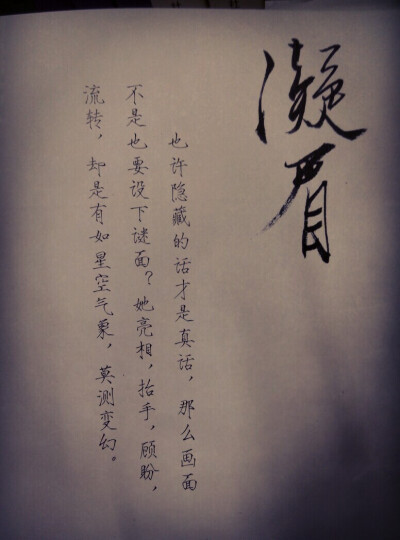 凝眉
也许隐藏的话才是真话，那么画面
不是也要设下谜面？她亮相，抬手，顾盼，
流转，却是有如星空气象，莫测变幻。